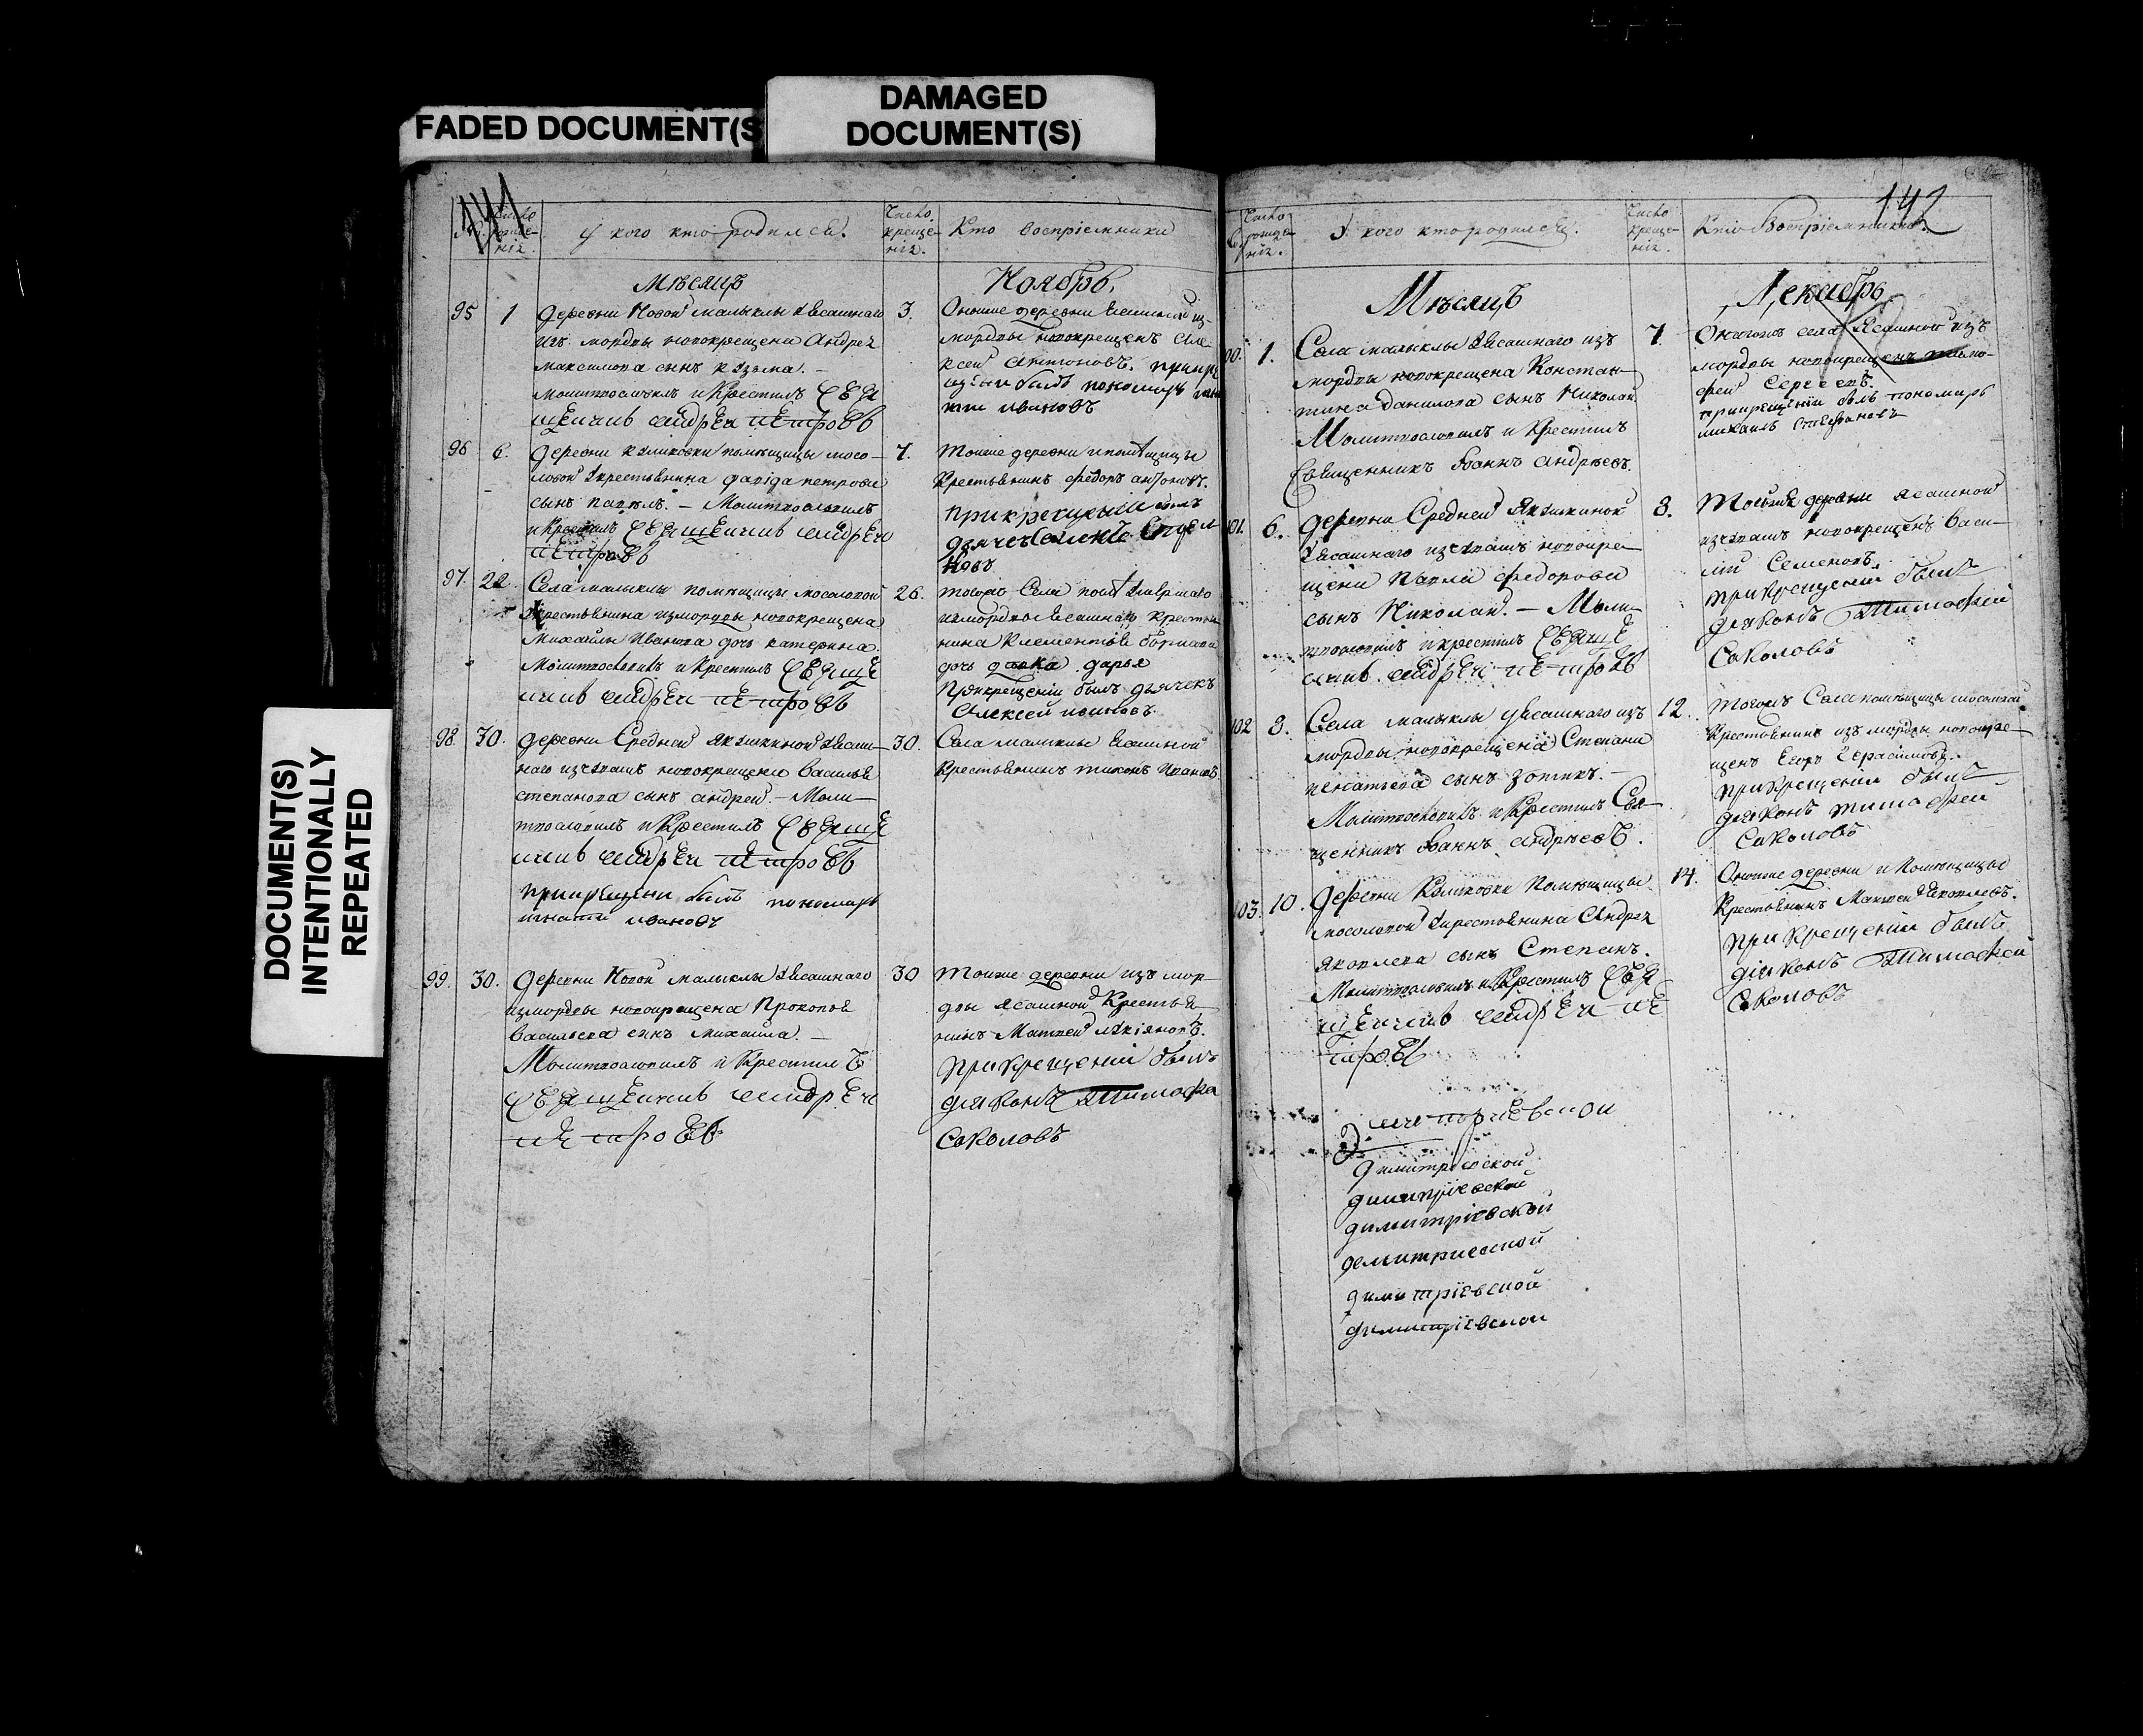 FADED DOCUMENT(S
DAMAGED
DOCUMENT(S)
DOCUMENT(S)
INTENTIONALLY
REPEATED
141
Число рожде-нія.
У кого кто родился.
Число креще-нія.
Кто воспріемники
Мѣсяцъ
Ноябрь.
95
1
деревни Новой малыклы Ясашнаго
изъ мордвы новокрещена Андрея
максимова сынъ кузма. —
молитвословилъ и Крестилъ Свя
щенникъ андрей петровъ
3.
Оныеже деревни Ясашной из
мордвы новокрещенъ Але-
ксей Антоновъ. прикре
щении былъ пономарь игна
тии ивановъ
96
6.
деревни помѣщицы мосо-
ловой крестьянина давида петрова
сынъ павелъ. — Молитвословилъ
и Крестилъ Священникъ андрей
петровъ
7.
Тоиже деревни и помѣщицы
Крестьянинъ федоръ антоновъ.
при крещении былъ
97.
22.
Села малыклы помѣщицы мосоловой
крестьянина измордвы новокрещена
Михайлы Иванова дочь катерина.
Молитвословилъ и Крестилъ Священ
никъ андрей петровъ
26.
тогожъ Села
измордвы Ясашнаго Крестья
нина
дочь девка дарья
Прикрещеніи былъ дьячекъ
Алексей
98.
30.
деревни Средней Якушкиной Ясаш-
наго изчувашъ новокрещена Василья
степанова сынъ андрей. — Моли-
твословилъ и Крестилъ Священ
никъ андрей петровъ
прикрещении былъ пономарь
игнатии ивановъ
30.
Села малыклы Ясашной
Крестьянинъ тихонъ Ивановъ.
99.
30.
деревни Новой малыклы Ясашнаго
измордвы новокрещена Прокопья
Васильева сынъ михайла. —
Молитвословилъ и Крестилъ
Священникъ андрей
петровъ
30
Тоиже деревни изъ мор-
двы Ясашной Крестья-
нинъ Матвей
При Крещении былъ
діаконъ Тимофей
Соколовъ
142
Число рожде-нія.
У кого кто родился.
Число креще-нія.
Кто Воспріемники.
Мѣсяцъ
Декабрь
1.
Села малыклы Ясашнаго изъ
мордвы новокрещена Констан-
тина данилова сынъ Николай
Молитвословилъ и Крестилъ
Священникъ Іоаннъ андрѣевъ.
7
Оногожъ села Ясашной изъ
мордвы новокрещенъ тимо-
фей Сергеевъ.
прикрещеніи былъ пономарь
михаилъ Стефановъ
101.
6.
деревни Средней Якушкиной
Ясашнаго изчувашъ новокре-
щена Павла Федорова
сынъ Николай. — Моли-
твословилъ и крестилъ Священ
никъ андрей петровъ
8.
Тоеже деревни Ясашной
изчувашъ новокрещенъ Васи-
лій Семеновъ.
при Крещении былъ
діаконъ Тимофей
Соколовъ
102
8.
Села малыклы уЯсашнаго изъ
мордвы новокрещена Степана
игнатьева сынъ зотикъ. —
Молитвословилъ и Крестилъ Свя-
щенникъ Іоаннъ андрѣевъ.
12.
тогожъ Села помѣщицы мосоловой
Крестьянинъ изъ мордвы новокре-
щенъ Егоръ Герасимовъ.
при Крещении былъ
діаконъ тимофеи
Соколовъ
103.
10.
деревни Помѣщицы
мосоловой крестьянина Андрея
яковлева сынъ Степанъ.
Молитвословилъ и Крестилъ Свя
щенникъ андрей пе
тровъ
14.
Оныеже деревни и Помѣщицы
Крестьянинъ Яковлевъ.
при Крещении былъ
діаконъ Тимофей
Соколовъ
димитріевской
димитріевской
димитріевской
димитриевской
димитріевской
димитріевской